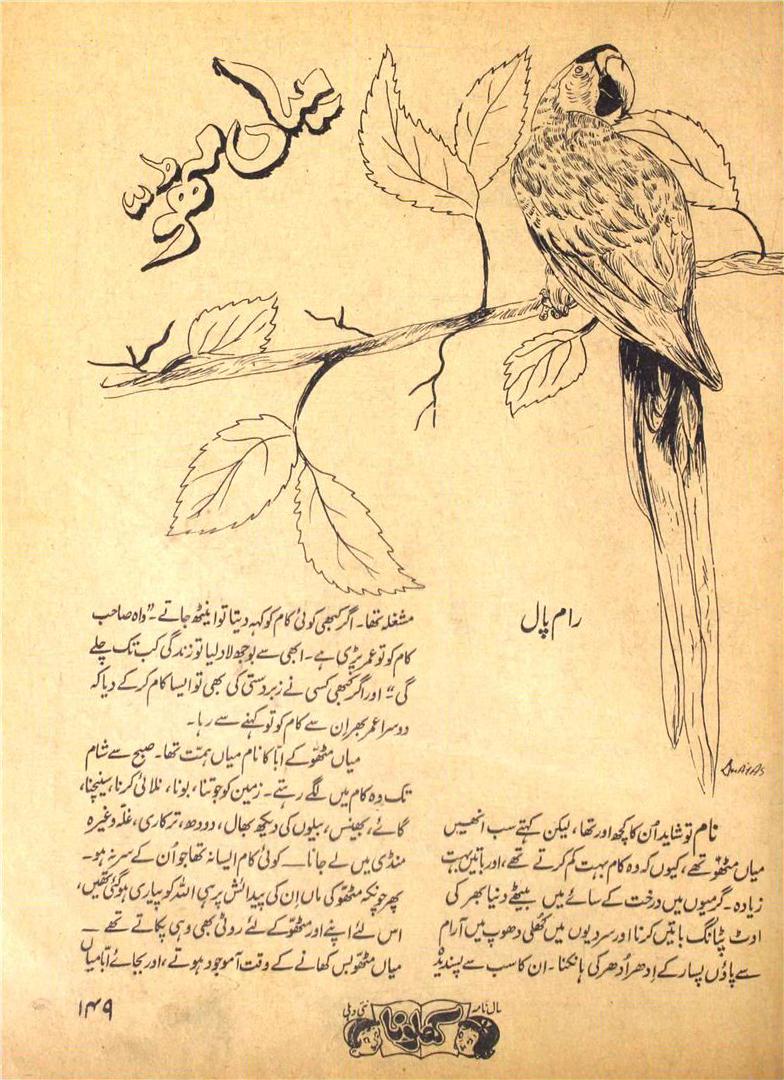 میاں مٹھو
رام پال
نام تو شاید اُن کا کچھ اور تھا، لیکن کہتے سب انھیں
میاں مٹھو تھے، کیوں کہ وہ کام بہت کم کرتے تھے، اور باتیں بہت
زیادہ۔ گرمیوں میں درخت کے سائے میں بیٹھے دنیا بھر کی
اوٹ پٹانگ باتیں کرنا اور سردیوں میں کُھلی دھوپ میں آرام
سے پاؤں پسار کے اِدھر اُدھر کی ہانکنا۔ ان کا سب سے پسندیدہ
مشغلہ تھا۔ اگر کبھی کوئی کام کو کہہ دیتا تو اینٹھ جاتے۔ "واہ صاحب
کام کو تو عمر پڑی ہے۔ ابھی سے بوجھ لاد لیا تو زندگی کب تک چلے
گی" اور اگر کبھی کسی نے زبردستی کی بھی تو ایسا کام کر کے دیا کہ
دوسرا عمر بھر اِن سے کام کو تو کہنے سے رہا۔
میاں مٹھّو کے ابّا کا نام میاں ہمّت تھا۔ صبح سے شام
تک وہ کام میں لگے رہتے۔ زمین کو جوتنا، بونا، نلائی کرنا، سینچنا،
گائے، بھینس، بیلوں کی دیکھ بھال، دودھ، ترکاری، غلّہ وغیرہ
منڈی میں لے جانا — کوئی کام ایسا نہ تھا جو اُن کے سر نہ ہو۔
پھر چونکہ مٹھّو کی ماں اِن کی پیدائش پر ہی اللہ کو پیاری ہو گئی تھیں،
اس لئے اپنے اور مٹھّو کے لئے روٹی بھی وہی پکاتے تھے —
میاں مٹھّو بس کھانے کے وقت آ موجود ہوتے، اور بجائے ابّا میاں
۱۴۹
سال نامہ کھلونا نئی دہلی